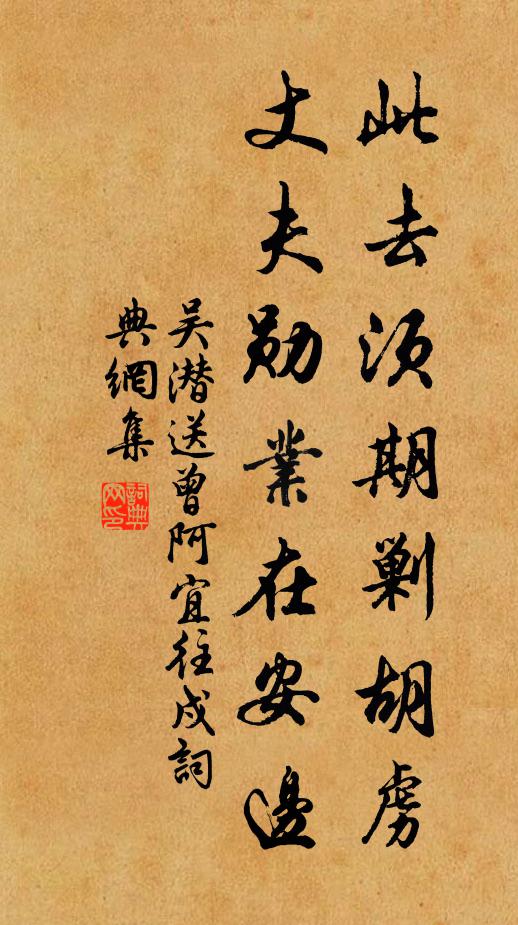 此去须期剿胡虏
丈夫勋業在安邊
吴潜送曾阿宜往戍詞
典網集
詞典网印